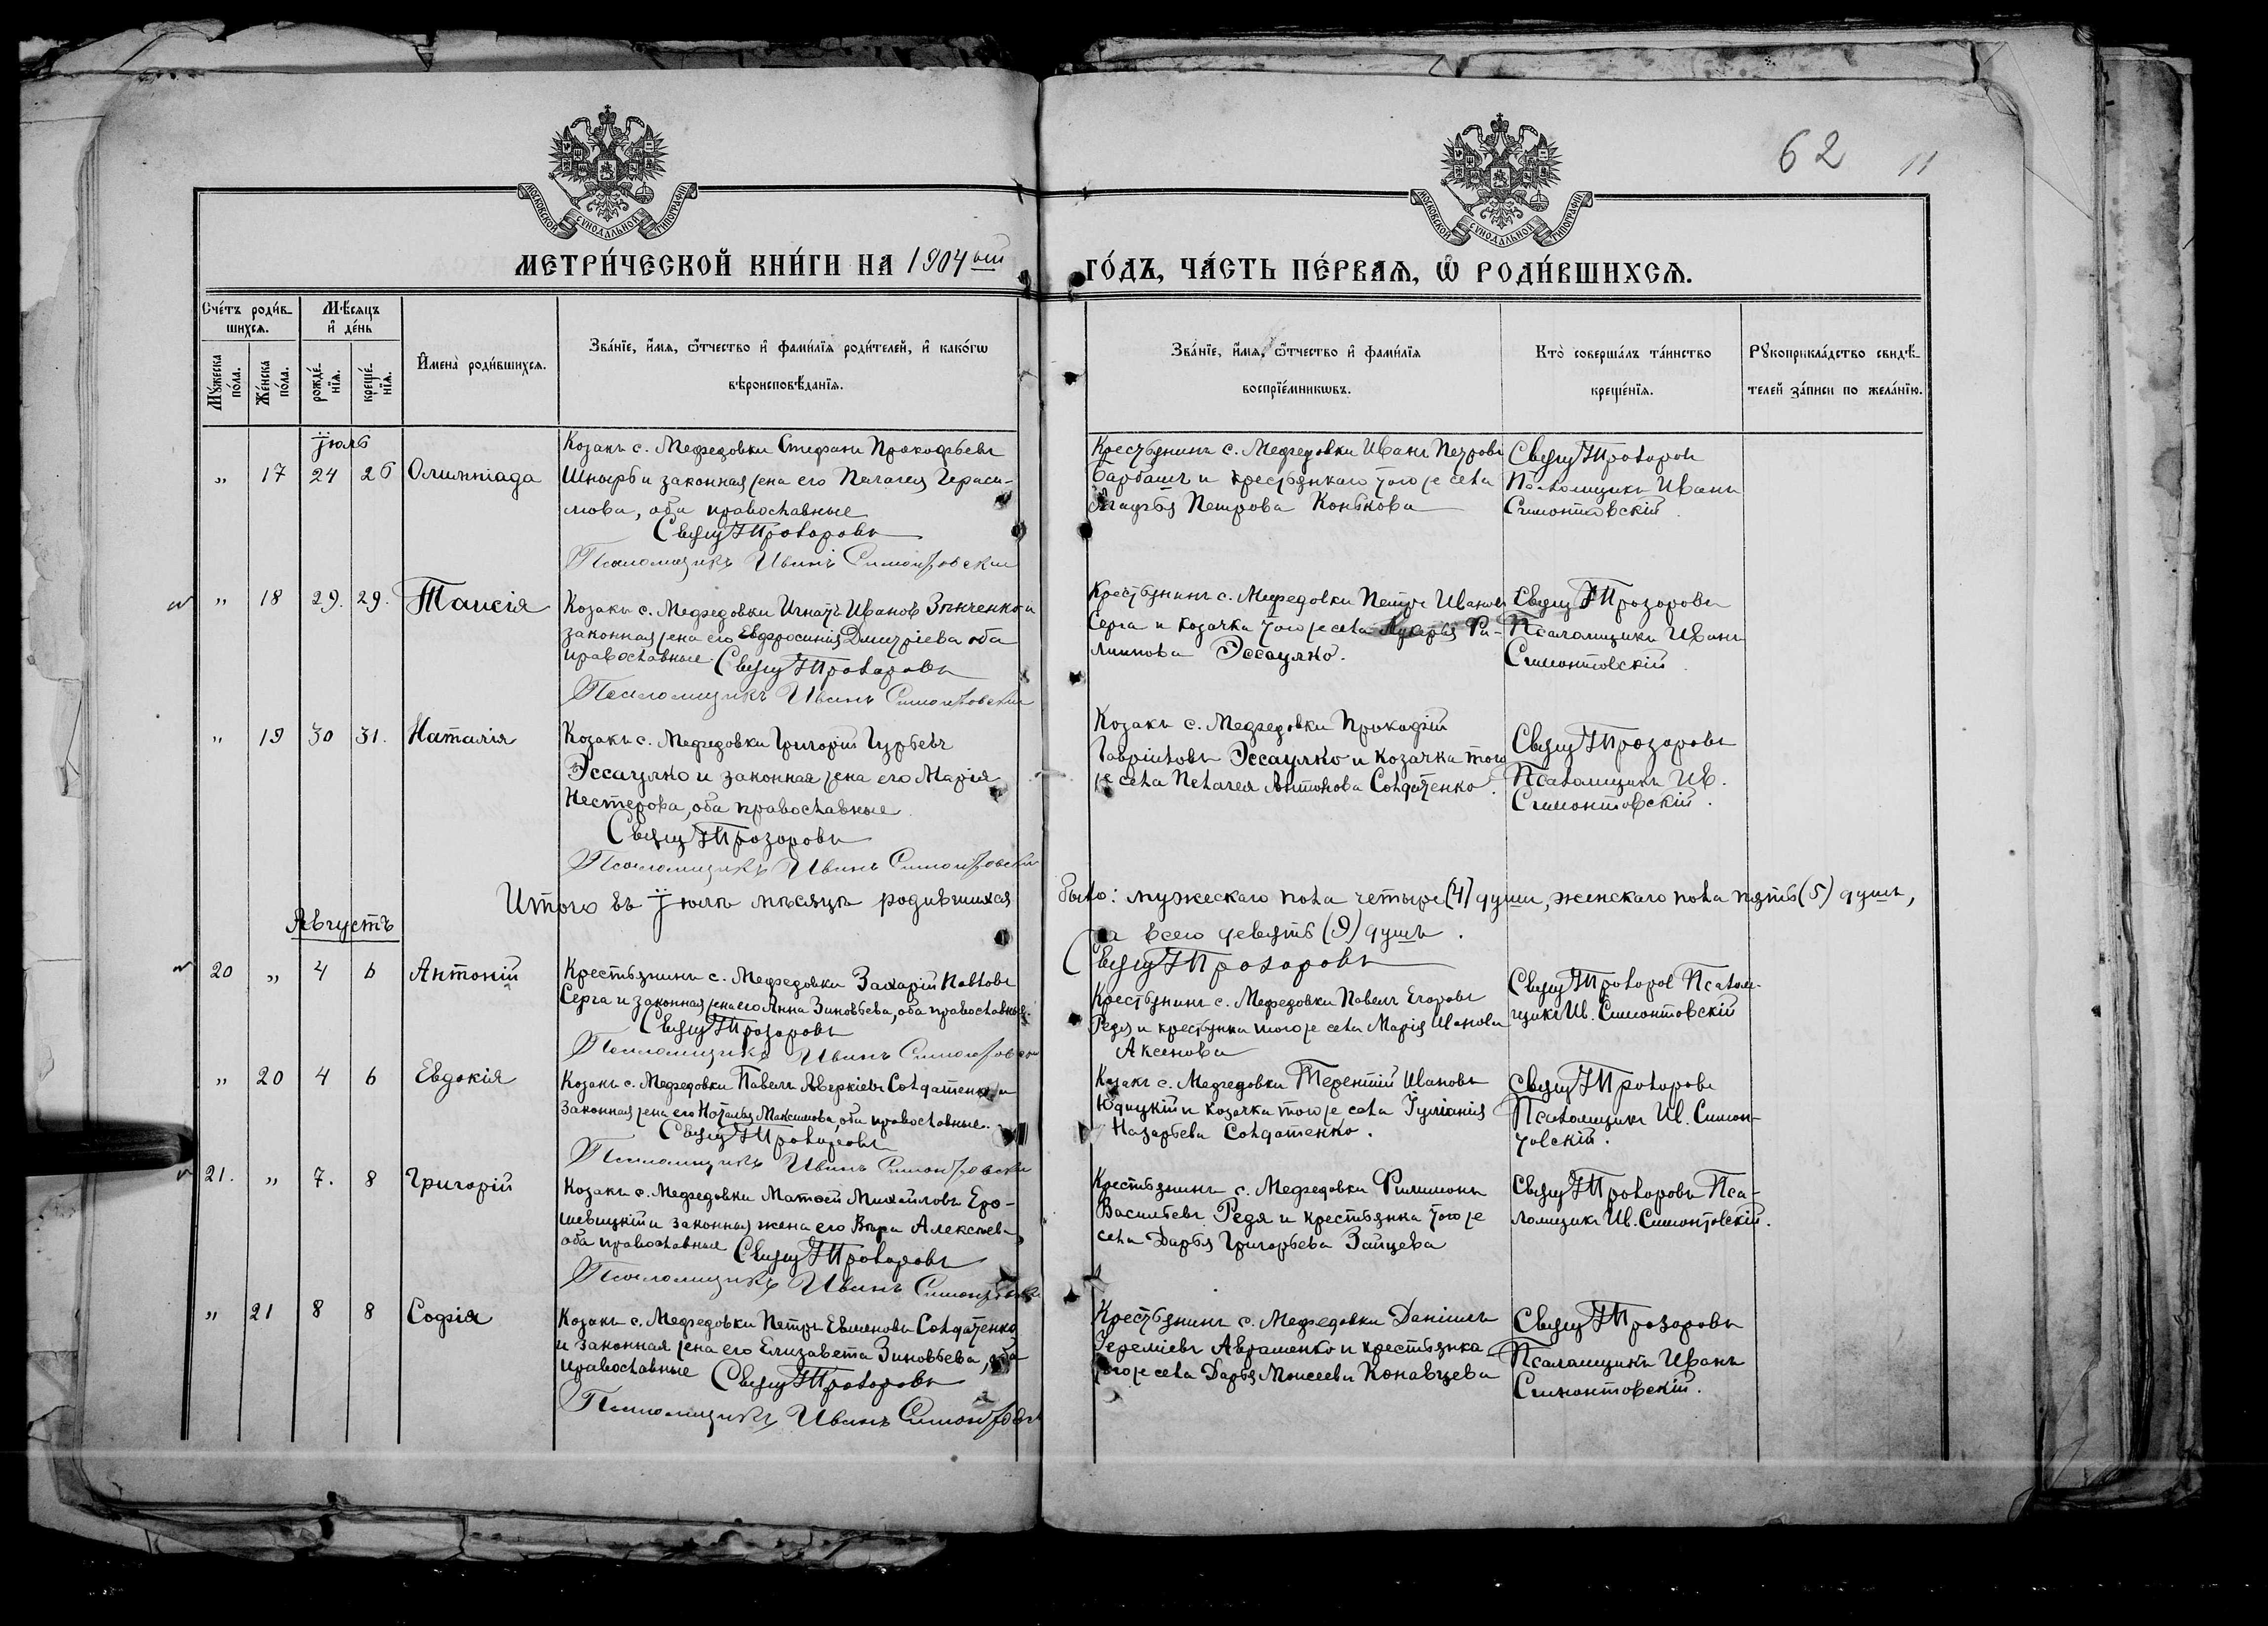 62 11
МОСКОВСКОЙ СѴНОДАЛЬНОЙ ТИПОГРАФІИ
МОСКОВСКОЙ СѴНОДАЛЬНОЙ ТИПОГРАФІИ
МЕТРИ́ЧЕСКОЙ КНИ́ГИ НА 1904 ый
ГО́ДЪ, ЧА́СТЬ ПЕ́РВАѦ, Ѡ РОДИ́ВШИХСѦ.
Сче́тъ роди́в-
шихсѧ.
Мꙋ́жеска
по́ла.
Же́нска
по́ла.
Мѣ́сѧцъ
и҆ де́нь
рожде́-
нїѧ.
креще́-
нїѧ.
И҆мена̀ роди́вшихсѧ.
Зва́нїе, и҆́мѧ, ѻ҆́тчество и҆ фами́лїѧ роди́телей, и҆ како́гѡ
вѣроисповѣ́данїѧ.
Зва́нїе, и҆́мѧ, ѻ҆́тчество и҆ фами́лїѧ
воспрїе́мникѡвъ.
Кто̀ соверша́лъ та́инство
креще́нїѧ.
Рꙋкоприкла́дство свидѣ́-
телей за́писи по жела́нїю.
Іюль
„ 17 24 26 Олимпіада
Козакъ с. Медведовки Стефанъ Прокофьевъ
Шнырь и законная жена его Пелагея Гераси-
мова, оба православные
Свящ Прозоровъ
Псаломщикъ Иванъ Симонтовскій
Крестьянинъ с. Медведовки Иванъ Петровъ
Барбашъ и крестьянка того же села
Петрова Конькова
Свящ Прозоровъ
Псаломщикъ Иванъ
Симонтовскій
„ 18 29. 29. Таисія
Козакъ с. Медведовки Игнатъ Ивановъ Зѣнченко и
законная жена его Евфросинія Дмитріева оба
православные. Свящ Прозоровъ
Псаломщикъ Иванъ Симонтовскій
Крестьянинъ с. Медведовки Петръ Ивановъ
Серга и козачка того же села Фи-
липпова Эссаулко.
Свящ Прозоровъ
Псаломщикъ Иванъ
Симонтовскій
„ 19 30 31. Наталія
Козакъ с. Медведовки Григорій Гурьевъ
Эссаулко и законная жена его Марія
Нестерова, оба православные
Свящ Прозоровъ
Псаломщикъ Иванъ Симонтовскій
Козакъ с. Медведовки Прокофій
Гавріиловъ Эссаулко и козачка того
же села Пелагея Антонова Солдатенко.
Свящ Прозоровъ
Псаломщикъ Ив.
Симонтовскій.
Итого въ Іюлѣ мѣсяцѣ родившихся было: мужескаго пола четыре (4) души, женскаго пола пять (5) душъ,
а всего девять (9) душъ.
Свящ Прозоровъ
Августъ
20 „ 4 6 Антоній
Крестьянинъ с. Медведовки Захарій Павловъ
Серга и законная жена его Анна Зиновьева, оба православные.
Свящ Прозоровъ
Псаломщикъ Иванъ Симонтовскій
Крестьянинъ с. Медведовки Павелъ Егоровъ
Редя и крестьянка того же села Марія Иванова
Аксенова
Свящ Прозоровъ Псалом-
щикъ Ив. Симонтовскій
„ 20 4 6 Евдокія
Козакъ с. Медведовки Павелъ Аверкіевъ Солдатенко и
законная жена его Наталья Максимова, оба православные.
Свящ Прозоровъ
Псаломщикъ Иванъ Симонтовскій
Козакъ с. Медведовки Терентій Ивановъ
Юдицкій и козачка того же села Іуліанія
Назарьева Солдатенко.
Свящ Прозоровъ
Псаломщикъ Ив. Симон-
товскій.
21. „ 7. 8 Григорій
Козакъ с. Медведовки Матѳей Михайловъ Еро-
шевицкій и законная жена его Вѣра Алексѣева
оба православные Свящ Прозоровъ
Псаломщикъ Иванъ Симонтовскій
Крестьянинъ с. Медведовки Филимонъ
Васильевъ Редя и крестьянка того же
села Дарья Григорьева Зайцева
Свящ Прозоровъ Пса-
ломщикъ Ив. Симонтовскій.
„ 21 8 8 Софія
Козакъ с. Медведовки Петръ Евменовъ Солдатенко
и законная жена его Елизавета Зиновьева, оба
православные Свящ Прозоровъ
Псаломщикъ Иванъ Симонтовскій
Крестьянинъ с. Медведовки Даніилъ
Іереміевъ Авраменко и крестьянка
того же села Дарья Моисеева Конавцева
Свящ Прозоровъ
Псаломщикъ Иванъ
Симонтовскій.